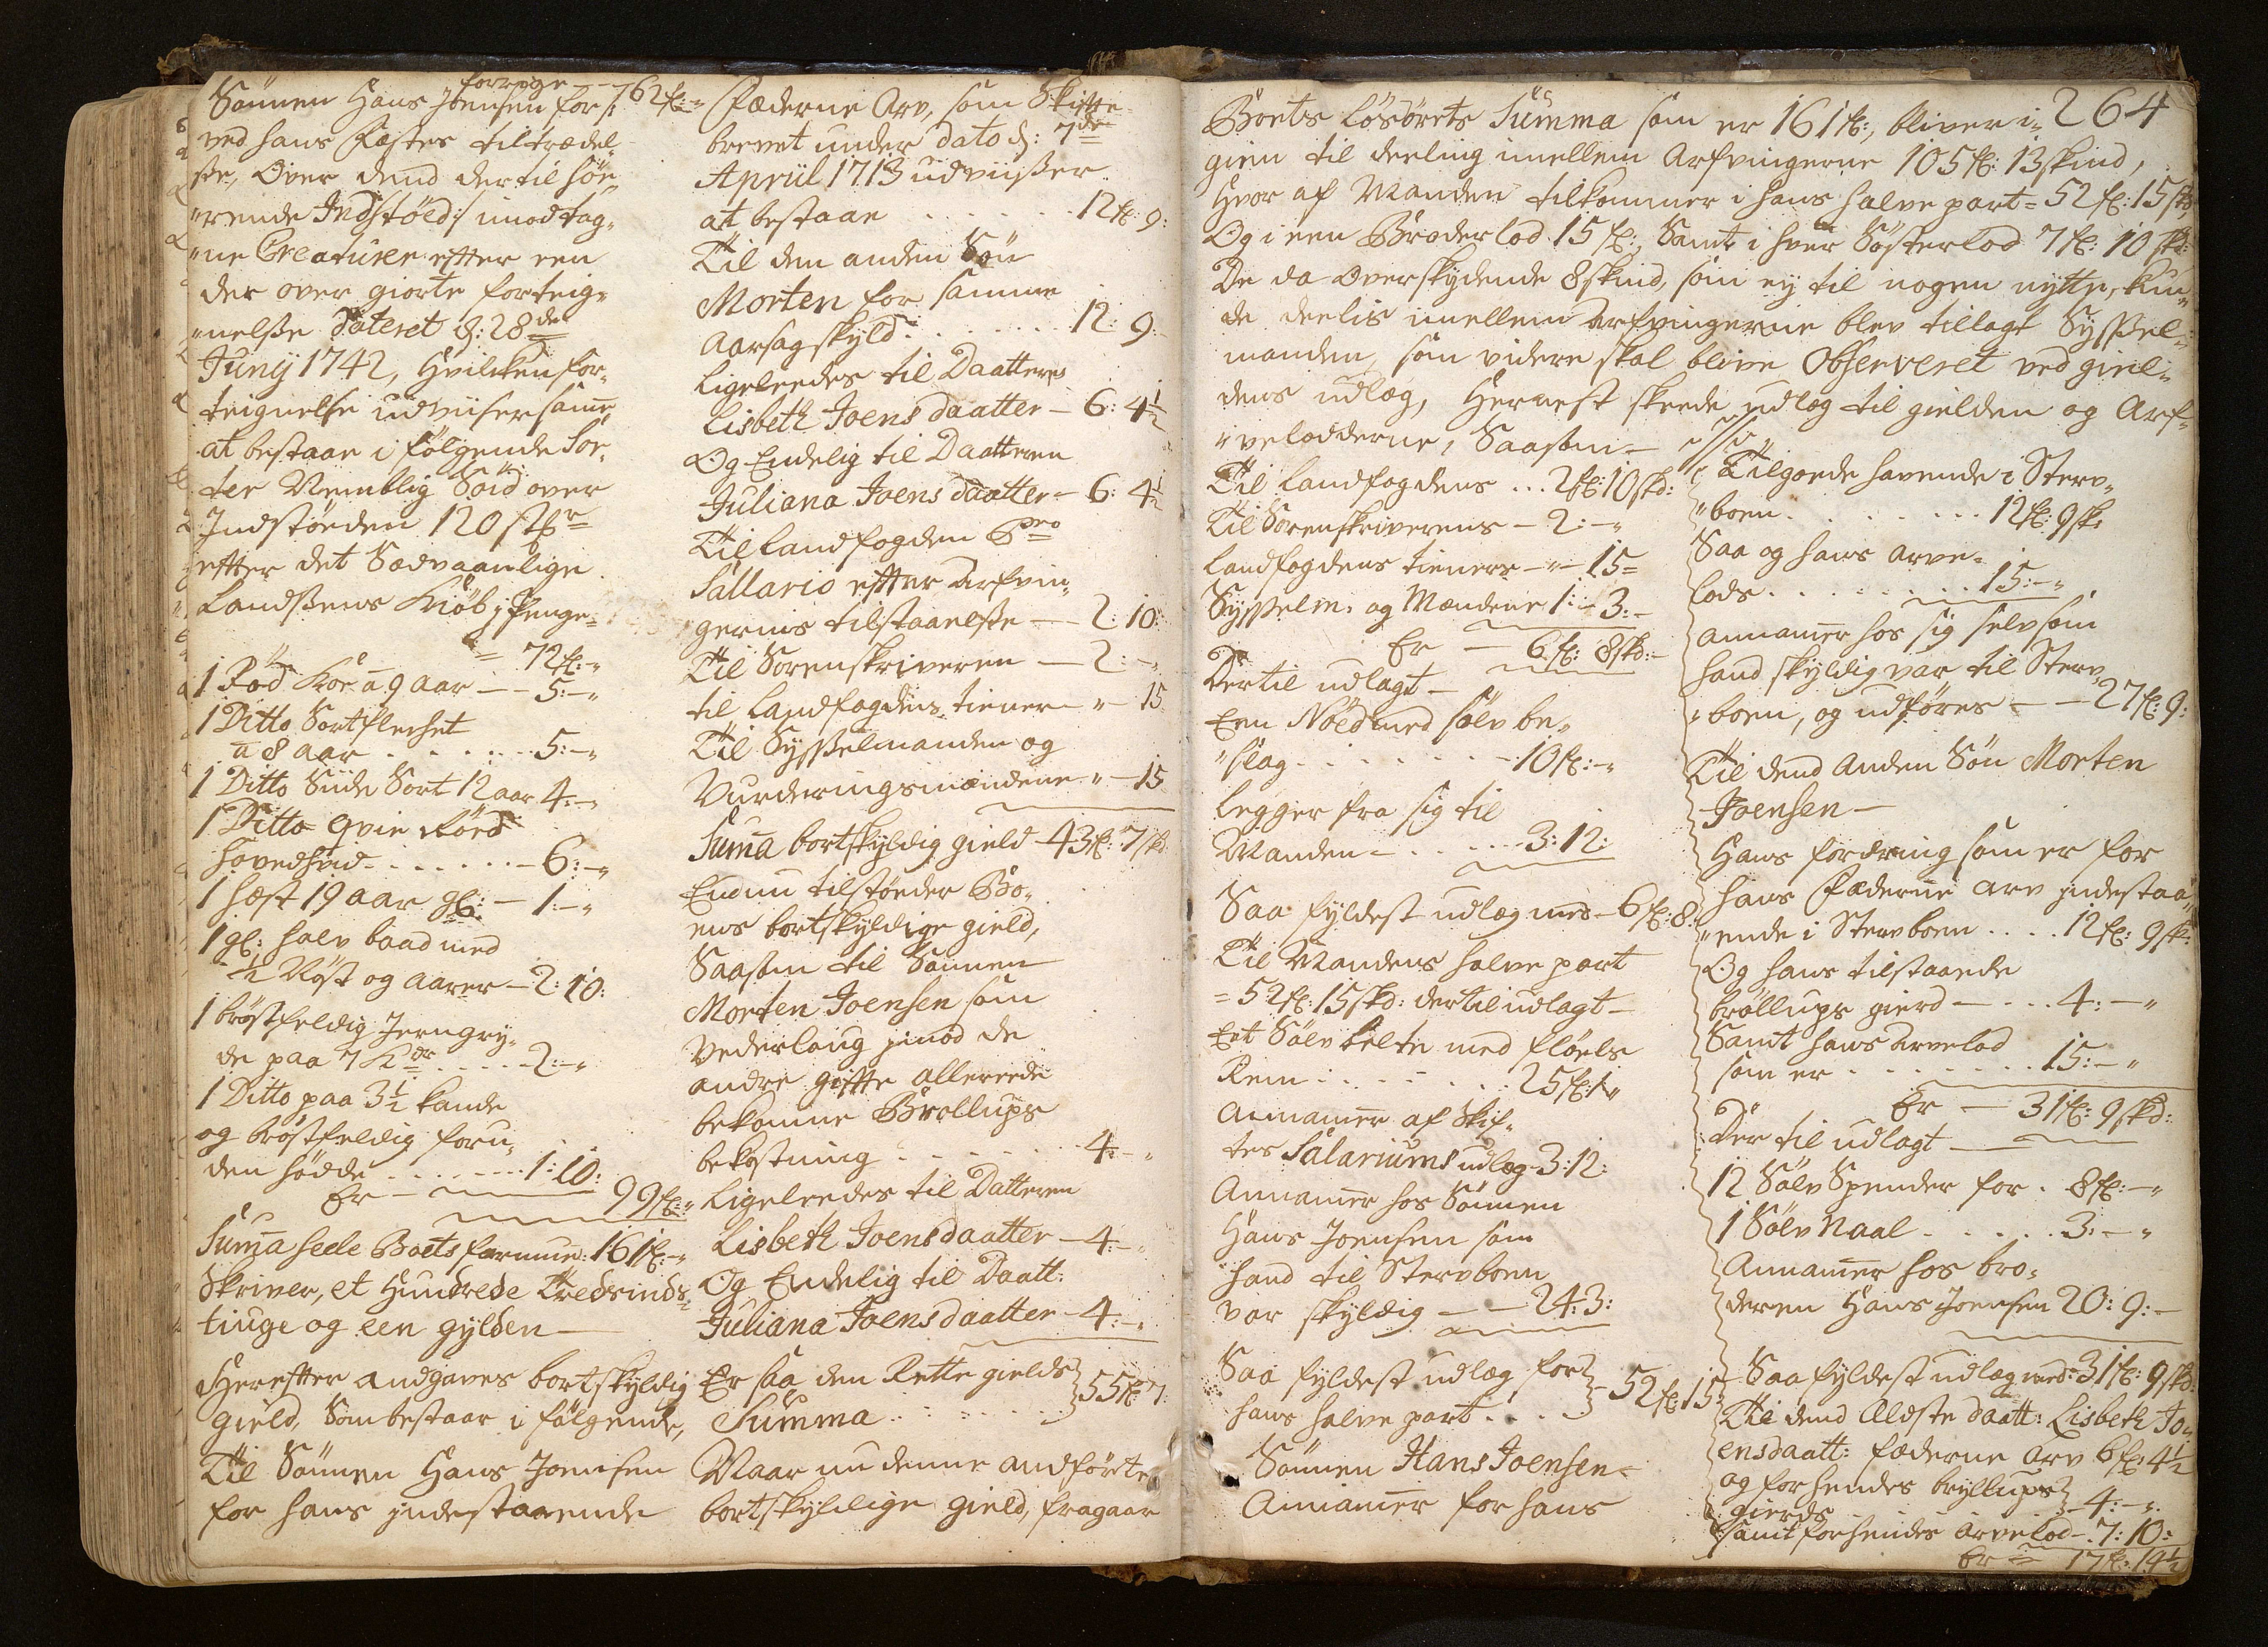 forrige - - 62 fl: - "
Sönnen Hans Joensen for /:
ved hans Fæstes tiltrædel„
sse, Over dend dertil höe„
„rende Indstöed :/ imodtag„
„ne Creaturer efter een
der over giorte forteig„
„nelsse Dateret d: 28de
Junij 1742, Hvilcken for„
teignelse udviiser samme
at bestaae i følgende Sor„
ter Nemblig Soid over
Indstöeden 120 st
efter det Sædvaanlige
Landssens Kiöb j penge„
= 72 fl: - "
1 Röd Koe a 9 aar - - 5: - "
1 Ditto Sortflecket
a 8 aar . . . . . . 5: - "
1 Ditto Siide Sort 12 aar 4: - "
1 Ditto Qvie Röed
hovedhvid . . . . . . 6: - "
1 Hæst 19 aar gl: - 1: - "
1 gl: halv baad med
½ Nöst og aarer - 2: 10:
1 bröstfeldig Jerngry„
de paa 7 Kdr . . . . . 2: - "
1 Ditto paa 3½ kande
og bröstfeldig foru„
den födde . . . . . . 1: 10:
Er - 99 fl: "
Suma heele Boets formue: 161 fl: - "
Skriver, et Hundrede Tredsinds„
tiuge og een gylden -
Herefter andgaves bortskyldig
gield, Som bestaar i følgende,
Til Sönnen Hans Joensen
for hans indestaaende
Fæderne Arv, som Skifte„
brevet under dato d: 7de
April 1713 udviisser
at bestaae . . . . . . 12 fl: 9:
Til den anden Sön
Morten for samme
Aarsag skyld . . . . . . 12: 9: -
Ligeleedes til Daatteren
Lisbeth Joens daatter - 6: 4½
Og Endelig til Daatteren
Juliana Joens daatter - 6: 4½
Til Landfogden Pro
Sallario efter Arfvin„
gernis tilstaaelsse - - 2: 10:
Til Sorenskriveren - 2: - "
til Landfogdens tienere - " - 15
Til Sysselmanden og
Vurderingsmændene " - 15
Suma bortskyldig gield - 43 fl: 7 skd
Endnu tilstöeder Bo„
ens bortskyldige gield,
Saasom til Sönnen
Morten Joensen som
Vederlaug imod de
andre gifte allereede
bekomne Bröllups
bekostning . . . . . . 4: - "
Ligeleedes til Datteren
Lisbeth Joensdaatter - 4: - "
Og Endelig til Daatt:
Juliana Joensdaatter - 4: - "
Er saa den Rette gields } 55 fl: 7:
Summa . . . . . . .
Naar nu denne andförte
bortskyldige gield, fragaar
264
Boets Lösörets Summa som er 161 fl:, bliver i„
gien til deeling imellem Arfvingerne 105 fl: 13 skind,
Hvor af Manden tilkommer i hans halve part = 52 fl: 15 skd,
Og i een Broderlod 15 fl:, Samt i hver Sösterlod 7 fl: 10 skd:
De da Overskydende 8 skind, som ey til nogen nytte, kun„
de deelis imellem Arfvingerne blev tillagt Syssel„
manden, som videre skal blive Observeret ved giel„
dens udlæg, Hernest skeede udlæg til gielden og Arf„
„velodderne, Saasom -
Til Landfogdens . . . 2 fl: 10 skd:
Til Sorenskriverens - 2: - "
Landfogdens tieners - " - 15 =
Sysselm: og Mændene 1: - 3: -
Er - 6 fl: 8 skd: -
Dertil udlagt -
Een Nöed med sölv be„
„slag . . . . . . . 10 fl: - "
Legger fra sig til
Manden - . . . . . 3: 12:
Saa fyldest udlæg med - 6 fl: 8:
Til Mandens halve part
= 52 fl: 15 skd: dertil udlagt -
Eet Sölv belte med flöels
Rem . . . . . . . . 25 fl: "
Annammer af Skif„
tes Salariums udlæg - 3: 12:
Annammer hos Sönnen
Hans Joensen som
hand til Stervboen
var skyldig - - 24: 3:
Saa fyldest udlæg for } 52 fl: 15
hans halve part . . . .
Sönnen Hans Joensen -
Annammer for hans
Tilgoede havende i Sterv„
„boen . . . . . . . . 12 fl: 9 sk:
Saa og hans arve„
lods . . . . . . . . 15: - "
annammer hos sig selv som
hand skyldig var til Sterv„
„boen, og udföres - - 27 fl: 9:
Til dend Anden Sön Morten
Joensen -
Hans fordring som er for
hans Fæderne arv jndestaa„
„ende i Stervboen . . . . 12 fl: 9 sk:
Og hans tilstaaede
bröllups gierd - - . . . 4: - "
Samt hans Arvelod
som er . . . . . . . . 15: - "
Er - 31 fl: 9 skd:
Der til udlagt -
12 Sölv Spender for . 8 fl: - "
1 Sölv Naal . . . . . 3: - "
Annammer hos bro„
deren Hans Joensen 20: 9: -
Saa fyldest udlæg med: 31 fl: 9 skd:
Til dend Eldste daatt: Lisbeth Jo„
ensdaatt: fæderne Arv 6 fl: 4½
og for hendes bryllups } 4: - ".
gierds
samt for hendes Arvelod - 7: 10:
Er = 17 fl: 14½